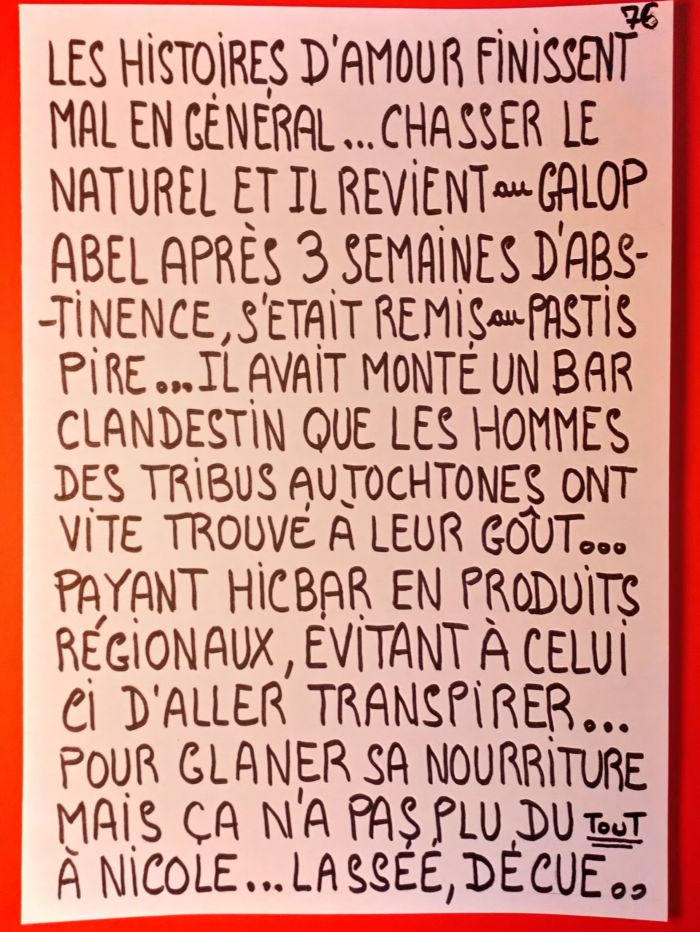 76
LES HISTOIRES D'AMOUR FINISSENT
MAL EN GÉNÉRAL...CHASSER LE
NATUREL ET IL REVIENT au GALOP
ABEL APRÈS 3 SEMAINES D'ABS-
-TINENCE, S'ETAIT REMIS au PASTIS
PIRE...IL AVAIT MONTÉ UN BAR
CLANDESTIN QUE LES HOMMES
DES TRIBUS AUTOCHTONES ONT
VITE TROUVÉ À LEUR GOÛT...
PAYANT HICBAR EN PRODUITS
RÉGIONAUX, ÉVITANT À CELUI
CI D'ALLER TRANSPIRER...
POUR GLANER SA NOURRITURE
MAIS ÇA N'A PAS PLU DU TOUT
À NICOLE...LASSÉÉ, DÉCUE..